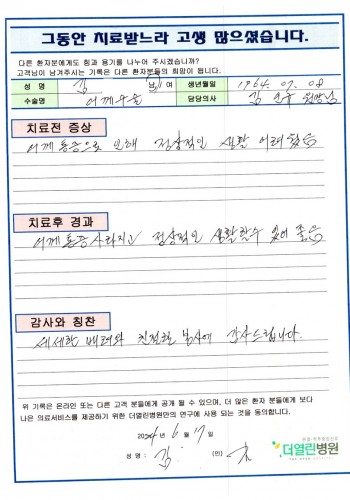 그동안 치료받느라 고생 많으셨습니다.
다른 환자분에게도 힘과 용기를 나누어 주시겠습니까?
고객님이 남겨주시는 기록은 다른 환자분들의 희망이 됩니다.
성 명 김 남 여 생년월일 1964. 07. 08
수술명 어깨수술 담당의사 김 원장님
치료전 증상
어깨통증으로 인해 정상적인 생활 어려웠음
치료후 경과
어깨통증사라지고 정상적인 생활할수 있어 좋음
감사와 칭찬
세세한 배려와 친절한 봉사에 감사드립니다.
위 기록은 온라인 또는 다른 고객 분들에게 공개 될 수 있으며, 더 많은 환자 분들에게 보다
나은 의료서비스를 제공하기 위한 더열린병원만의 연구에 사용 되는 것을 동의합니다.
2024년 6 월 17 일
성 명 : 김 (인)
더열린병원